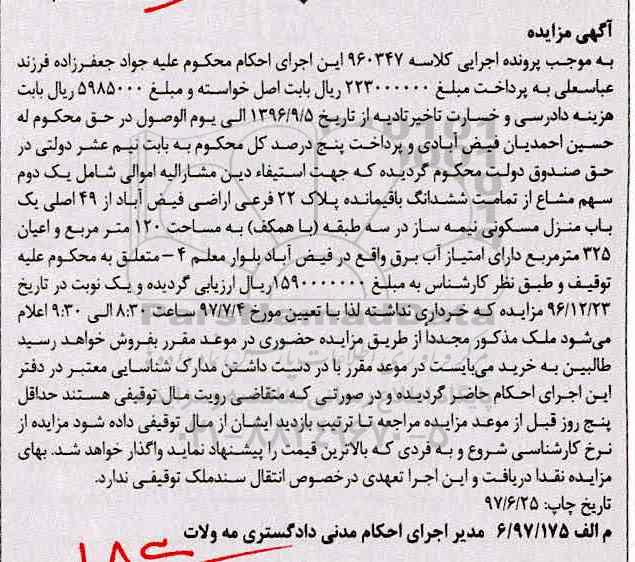 آگهی مزایده
به موجب پرونده اجرایی کلاسه ۹۶۰۳۴۷ این اجرای احکام محکوم علیه جواد جعفرزاده فرزند
عباسعلی به پرداخت مبلغ ۲۲۳۰۰۰۰۰۰ ریال بابت اصل خواسته و مبلغ ۵۹۸۵۰۰۰ ریال بابت
هزینه دادرسی و خسارت تاخیرتادیه از تاریخ ۱۳۹۶/۹/۵ الی یوم الوصول در حق محکوم له
حسین احمدیان فیض ابادی و پرداخت پنج درصد کل محکوم به بابت نیم عشر دولتی در
حق صندوق دولت محکوم گردیده که جهت استیفاء دین مشارالیه اموالی شامل یک دوم
سهم مشاع از تمامت ششدانگ باقیمانده پلاک ۲۲ فرعی اراضی فیض آباد از ۴۹ اصلی یک
باب منزل مسکونی نیمه ساز در سه طبقه (با همکف) به مساحت ۱۲۰ متر مربع و اعیان
۳۲۵ مترمربع دارای امتیاز آب برق واقع در فیض آباد بلوار معلم ۴ – متعلق به محکوم علیه
توقیف و طبق نظر کارشناس به مبلغ ۱۵۹۰۰۰۰۰۰۰ریال ارزیابی گردیده و یک نوبت در تاریخ
۹۶/۱۲/۲۳ مزایده که خریداری نداشته لذا با تعیین مورخ ۹۷/۷/۴ ساعت ۸:۳۰ الی ۹:۳۰ اعلام
می‌شود ملک مذکور مجدداً از طریق مزایده حضوری در موعد مقرر بفروش خواهد رسید
طالبین به خرید می‌بایست در موعد مقرر با در دست داشتن مدارک شناسایی معتبر در دفتر
این اجرای احکام حاضر گردیده و در صورتی که متقاضی رویت مال توقیفی هستند حداقل
پنج روز قبل از موعد مزایده مراجعه تا ترتیب بازدید ایشان از مال توقیفی داده شود مزایده از
نرخ کارشناسی شروع و به فردی که بالاترین قیمت را پیشنهاد نماید واگذار خواهد شد. بهای
مزایده نقدا دریافت و این اجرا تعهدی درخصوص انتقال سندملک توقیفی ندارد.
تاریخ چاپ: ۹۷/۶/۲۵
م الف ۶/۹۷/۱۷۵ مدیر اجرای احکام مدنی دادگستری مه ولات
ParsNamadData
۰۲۱-۸۸۳۴۹۶۷۰-۵